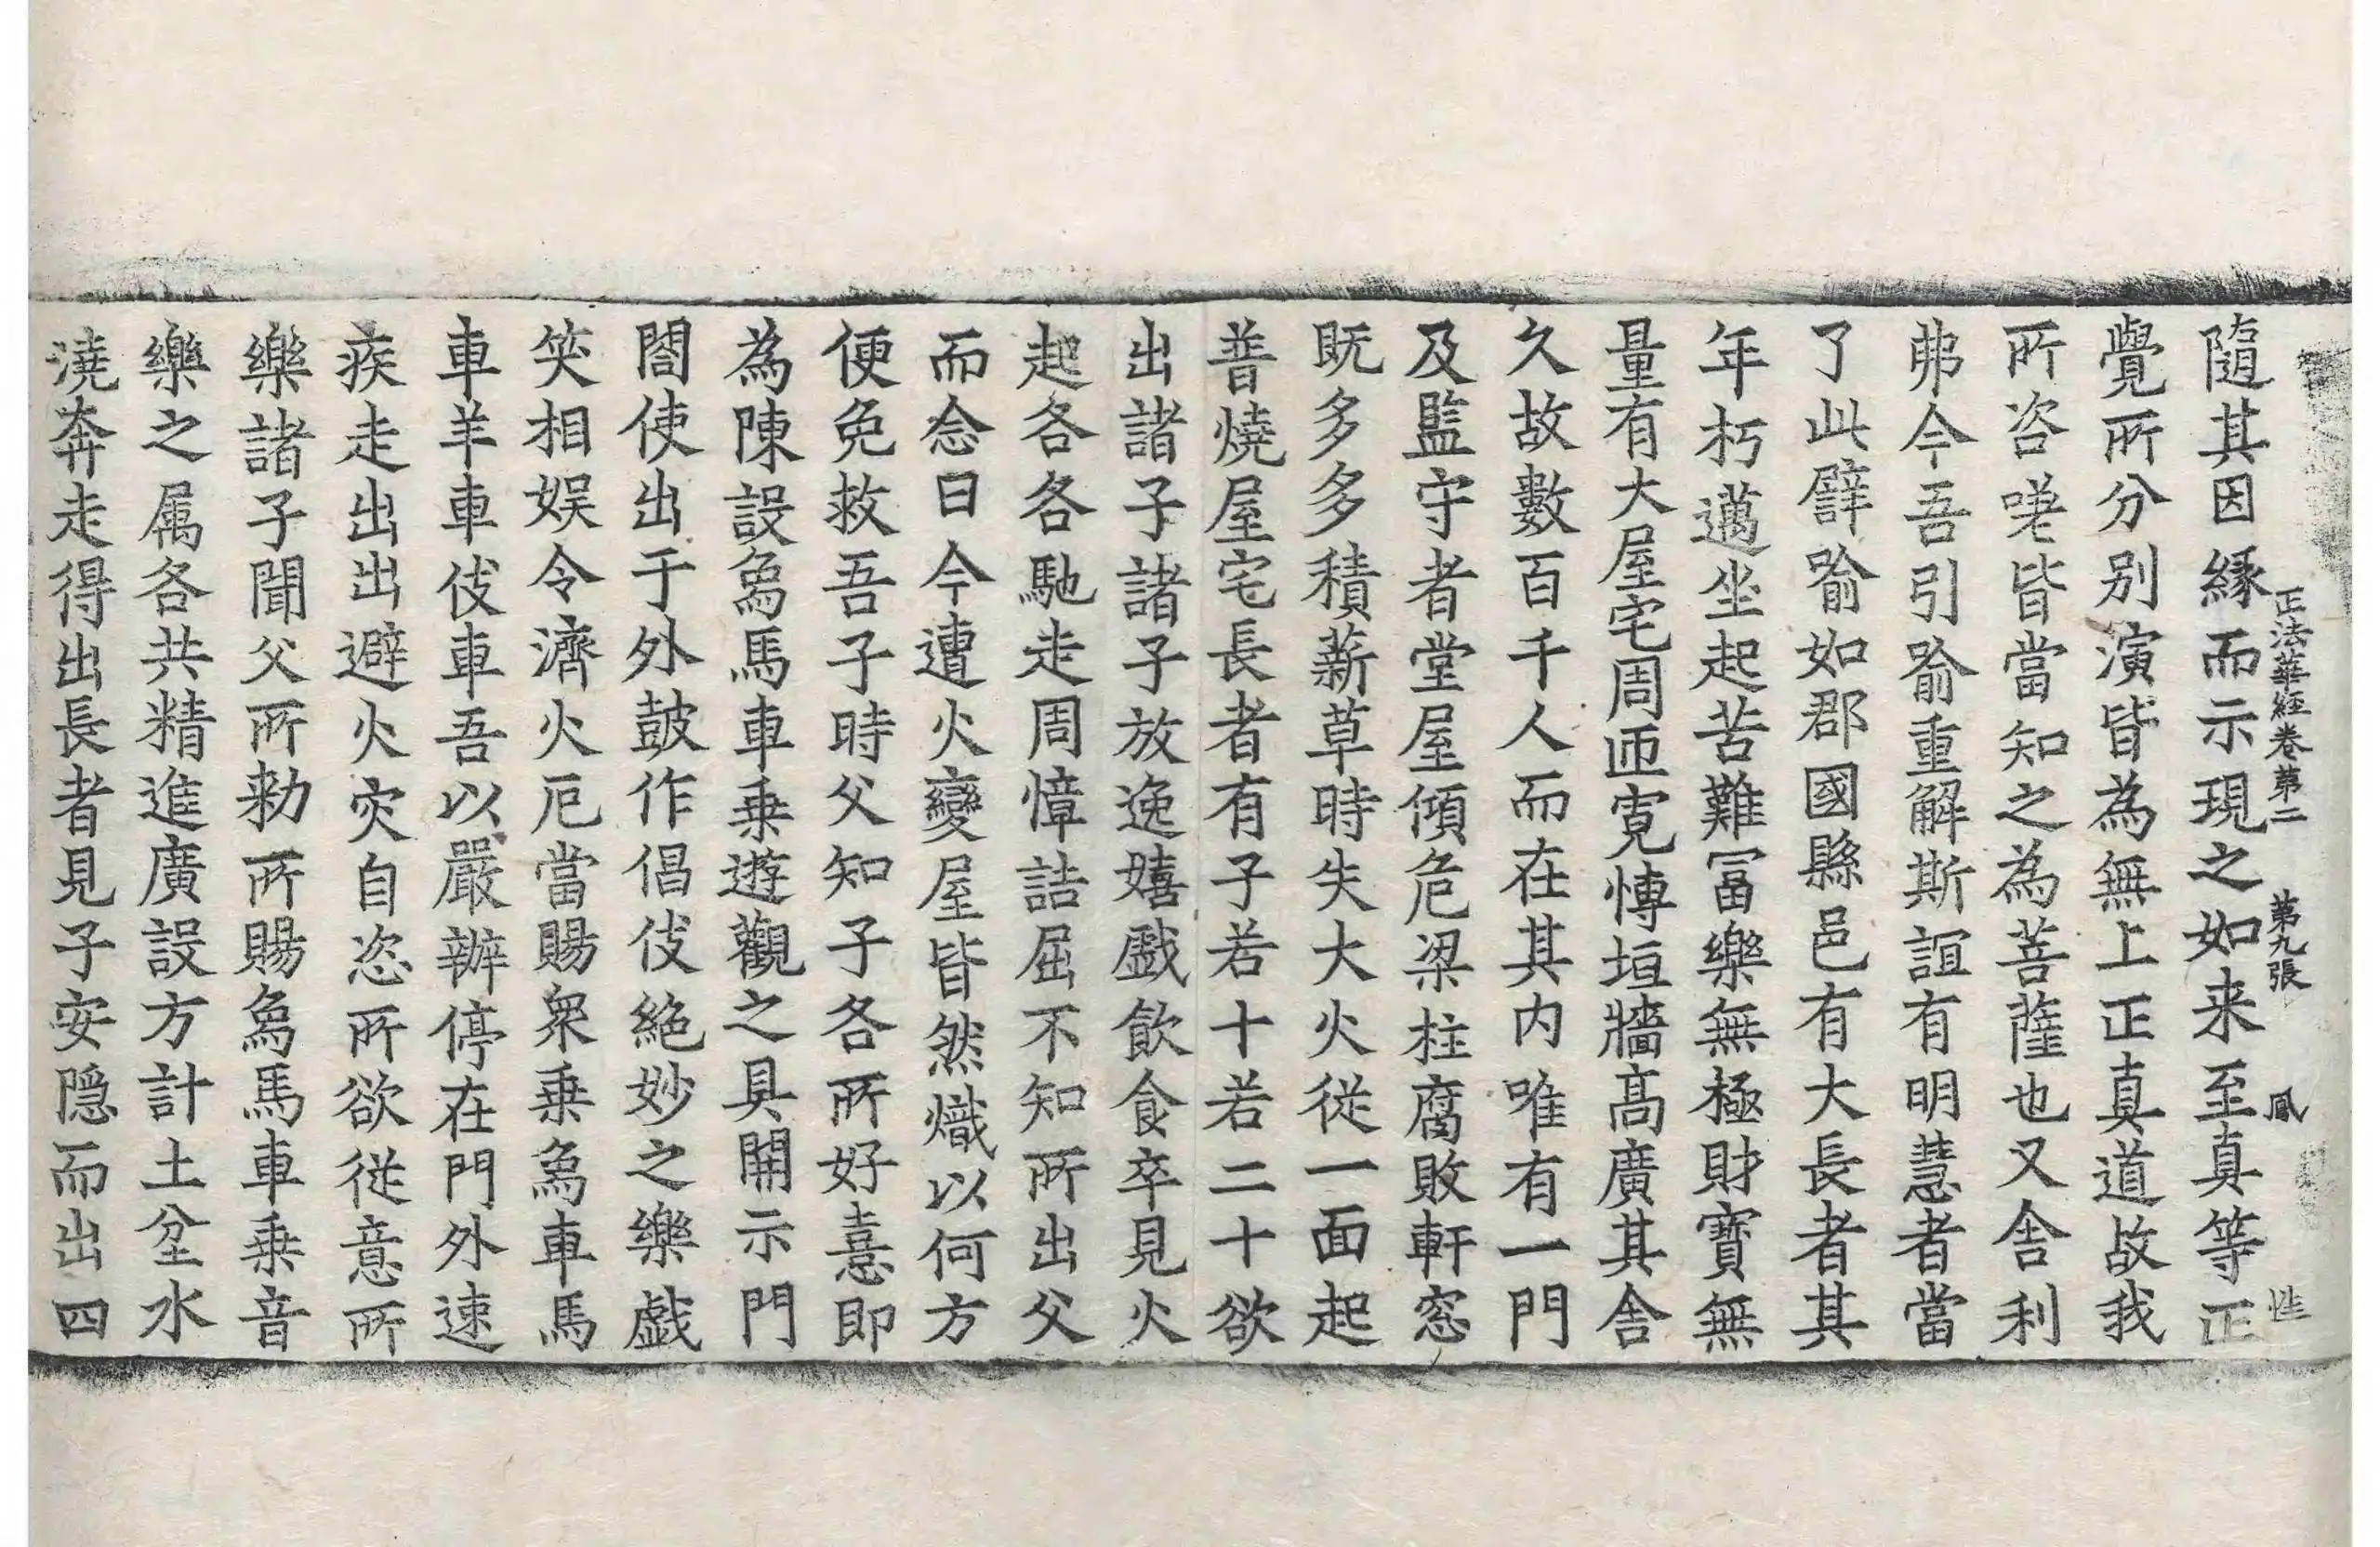 正法華經卷第二　第九張　鳳
隨其因緣而示現之如来至真等正
覺所分別演皆為無上正真道故我
所咨嗟皆當知之為菩薩也又舍利
弗今吾引喻重解斯誼有明慧者當
了此譬喻如郡國縣邑有大長者其
年朽邁坐起苦難冨樂無極財寶無
量有大屋宅周迊寛慱垣牆髙廣其舍
久故數百千人而在其内唯有一門
及監守者堂屋傾危梁柱腐敗軒窓
既多多積薪草時失大火從一面起
普燒屋宅長者有子若十若二十欲
出諸子諸子放逸嬉戲飲食卒見火
起各各馳走周慞詰屈不知所出父
而念曰今遭火變屋皆然熾以何方
便免救吾子時父知子各所好憙即
為陳設象馬車乗遊觀之具開示門
閤使出于外鼓作倡伎絕妙之樂戯
笑相娱令濟火厄當賜衆乗象車馬
車羊車伎車吾以嚴辦停在門外速
疾走出出避火灾自恣所欲従意所
樂諸子聞父所勑所賜象馬車乗音
樂之属各共精進廣設方計土坌水
澆奔走得出長者見子安隠而出四